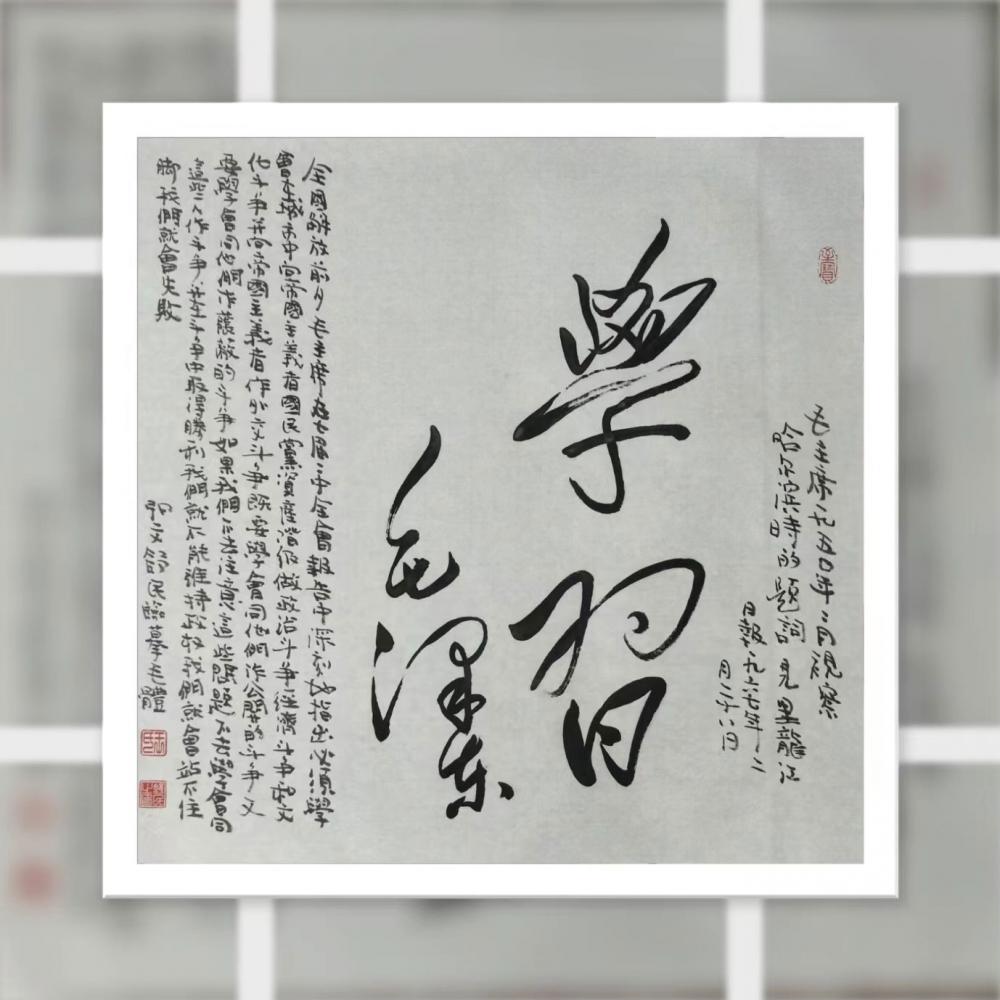 毛主席一九五〇年二月視察
哈尔濱時的題詞 見黑龍江
日報一九六七年十二
月二十八日
學習
毛澤東
全國解放前夕毛主席在七届二中全會報告中深刻地指出必須學
會在城市中向帝國主義者國民黨資産階級做政治斗争經濟斗争和文
化斗争并向帝國主義者作外交斗争既要學會同他們作公開的斗争又
要學會同他們作蔭蔽的斗争如果我們不去注意這些問題不去學會同
這些人作斗争并在斗争中取得勝利我們就不能維持政權我們就會站不住
脚我們就會失敗
民臨摹毛體